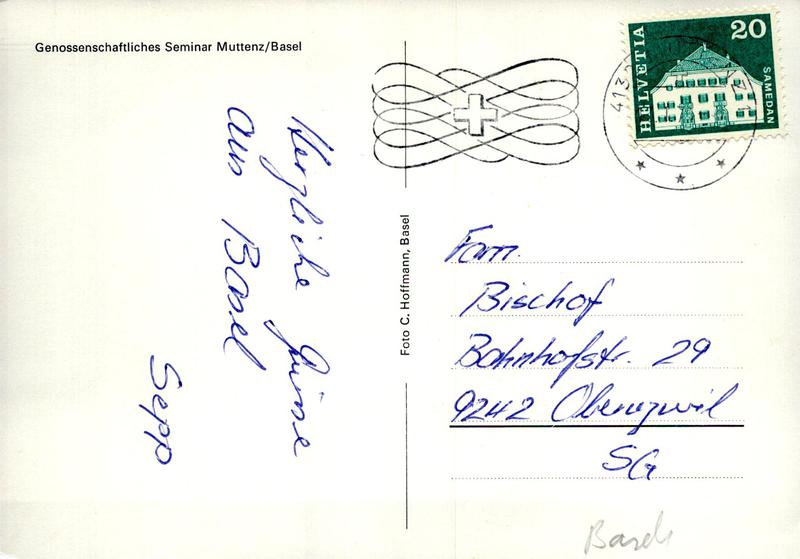 Genossenschaftliches Seminar Muttenz/Basel
HELVETIA
20
SAMEDAN
413
71
Herzliche Grüsse
aus Basel
Sepp
Foto C. Hoffmann, Basel
Fam.
Bischof
Bahnhofstr. 29
9242 Oberuzwil
SG
Basel